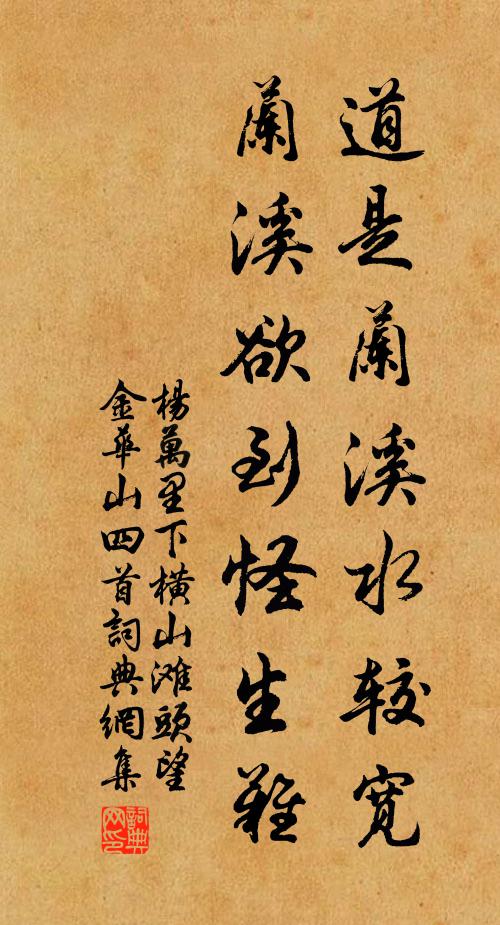 道是蘭溪水较寬
蘭溪欲到怪生難
楊萬里下橫山滩頭望
金華山四首詞典網集
詞典
网印